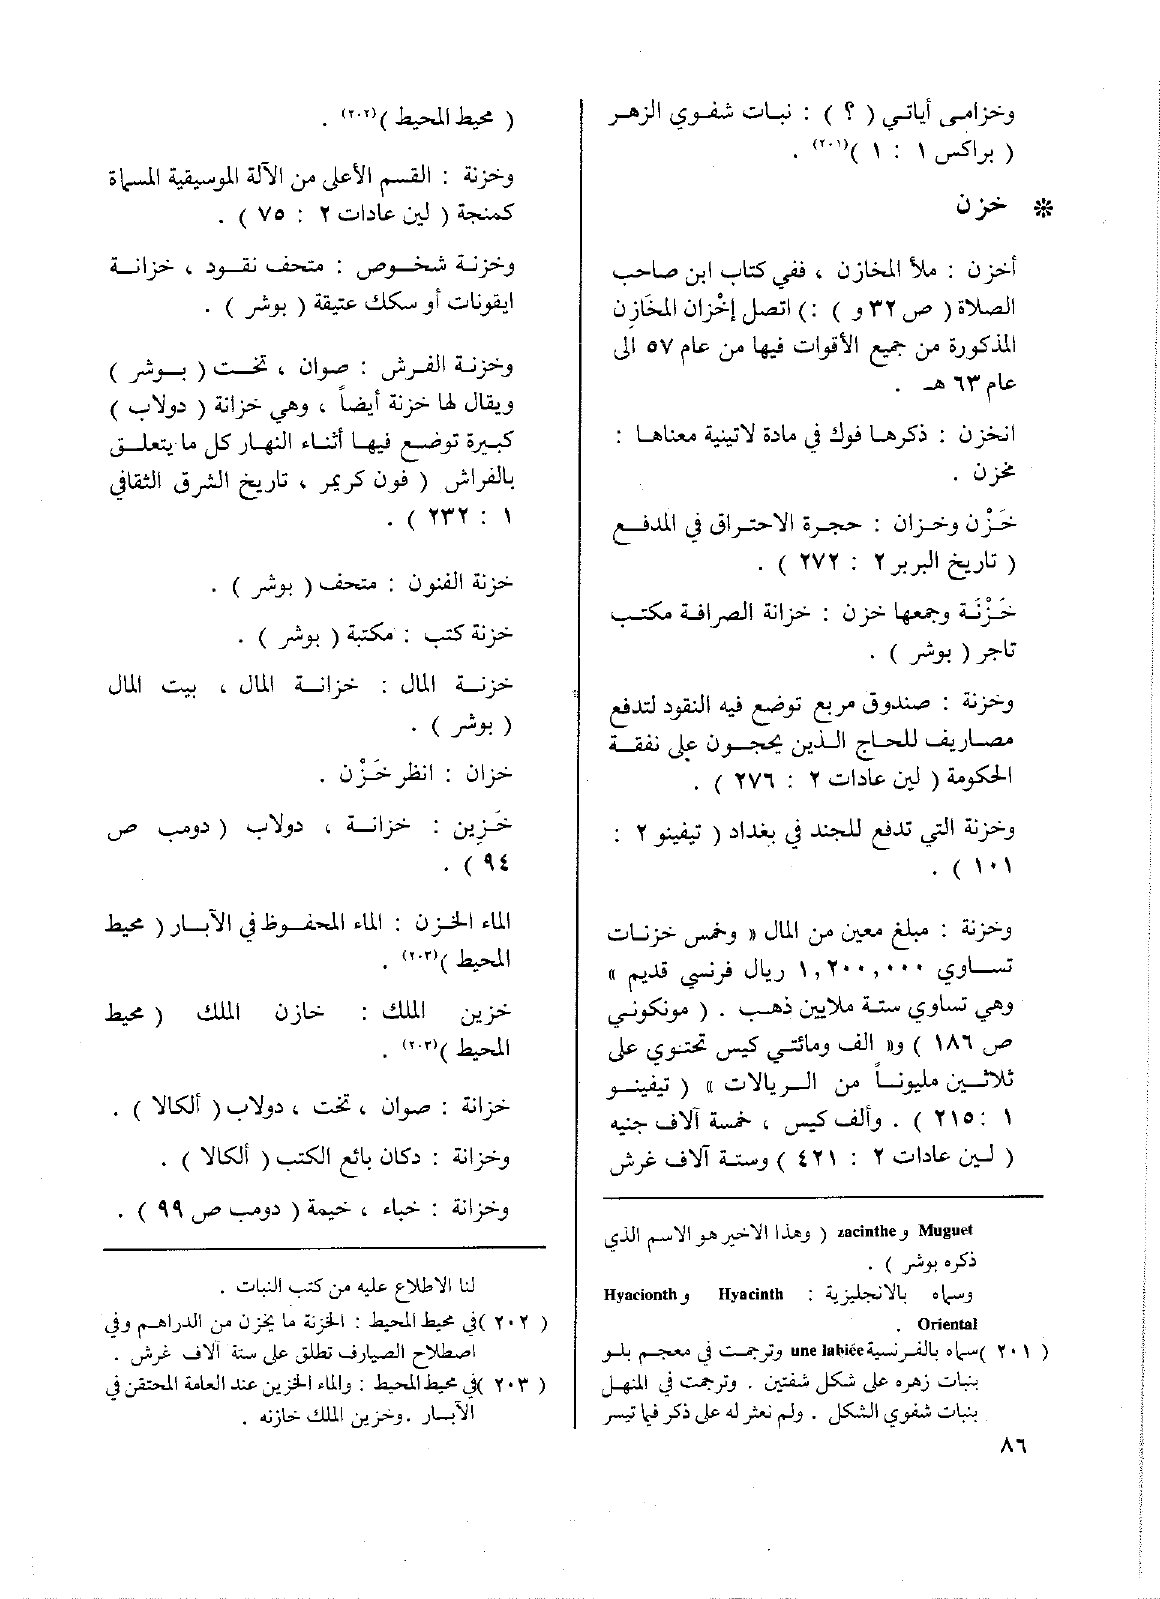 وخزامى أياتي ( ؟ ) : نبات شفوي الزهر
( براكس ١ : ١ )(٢٠١) .
❊ خزن
أخزن : ملأ المخازن ، ففي كتاب ابن صاحب
الصلاة ( ص ٣٢ و ) :) اتصل إخْزان المخَازِن
المذكورة من جميع الأقوات فيها من عام ٥٧ الى
عام ٦٣ هـ .
انخزن : ذكرها فوك في مادة لاتينية معناها :
مخزن .
خَزْن وخزان : حجرة الاحتراق في المدفع
( تاريخ البربر ٢ : ٢٧٢ ) .
خَزْنَة وجمعها خزن : خزانة الصرافة مكتب
تاجر ( بوشر ) .
وخزنة : صندوق مربع توضع فيه النقود لتدفع
مصاريف للحاج الذين يحجون على نفقة
الحكومة ( لين عادات ٢ : ٢٧٦ ) .
وخزنة التي تدفع للجند في بغداد ( تيفينو ٢ :
١٠١ ) .
وخزنة : مبلغ معين من المال « وخمس خزنات
تساوي ١,٢٠٠,٠٠٠ ريال فرنسي قديم »
وهي تساوي ستة ملايين ذهب . ( مونكوني
ص ١٨٦ ) و« الف ومائتي كيس تحتوي على
ثلاثين مليوناً من الريالات » ( تيفينو
١ : ٢١٥ ) . وألف كيس ، خمسة آلاف جنيه
( لين عادات ٢ : ٤٢١ ) وستة آلاف غرش
Muguet و zacinthe ( وهذا الاخير هو الاسم الذي
ذكره بوشر ) .
وسماه بالانجليزية : Hyacinth و Hyacionth
Oriental .
( ٢٠١ )سماه بالفرنسية une labiée وترجمت في معجم بلو
بنبات زهره على شكل شفتين . وترجمت في المنهل
بنبات شفوي الشكل . ولم نعثر له على ذكر فيما تيسر
( محيط المحيط )(٢٠٢) .
وخزنة : القسم الأعلى من الآلة الموسيقية المسماة
كمنجة ( لين عادات ٢ : ٧٥ ) .
وخزنة شخوص : متحف نقود ، خزانة
ايقونات أو سكك عتيقة ( بوشر ) .
وخزنة الفرش : صوان ، تخت ( بوشر )
ويقال لها خزنة أيضاً ، وهي خزانة ( دولاب )
كبيرة توضع فيها أثناء النهار كل ما يتعلق
بالفراش ( فون كريمر ، تاريخ الشرق الثقافي
١ : ٢٣٢ ) .
خزنة الفنون : متحف ( بوشر ) .
خزنة كتب : مكتبة ( بوشر ) .
خزنة المال : خزانة المال ، بيت المال
( بوشر ) .
خزان : انظر خَزْن .
خَزِين : خزانة ، دولاب ( دومب ص
٩٤ ) .
الماء الخزن : الماء المحفوظ في الآبار ( محيط
المحيط )(٢٠٣) .
خزين الملك : خازن الملك ( محيط
المحيط )(٢٠٣) .
خزانة : صوان ، تخت ، دولاب ( ألكالا ) .
وخزانة : دكان بائع الكتب ( ألكالا ) .
وخزانة : خباء ، خيمة ( دومب ص ٩٩ ) .
لنا الاطلاع عليه من كتب النبات .
( ٢٠٢ )في محيط المحيط : الخزنة ما يخزن من الدراهم وفي
اصطلاح الصيارف تطلق على ستة آلاف غرش .
( ٢٠٣ )في محيط المحيط : والماء الخزين عند العامة المحتقن في
الآبار . وخزين الملك خازنه .
٨٦